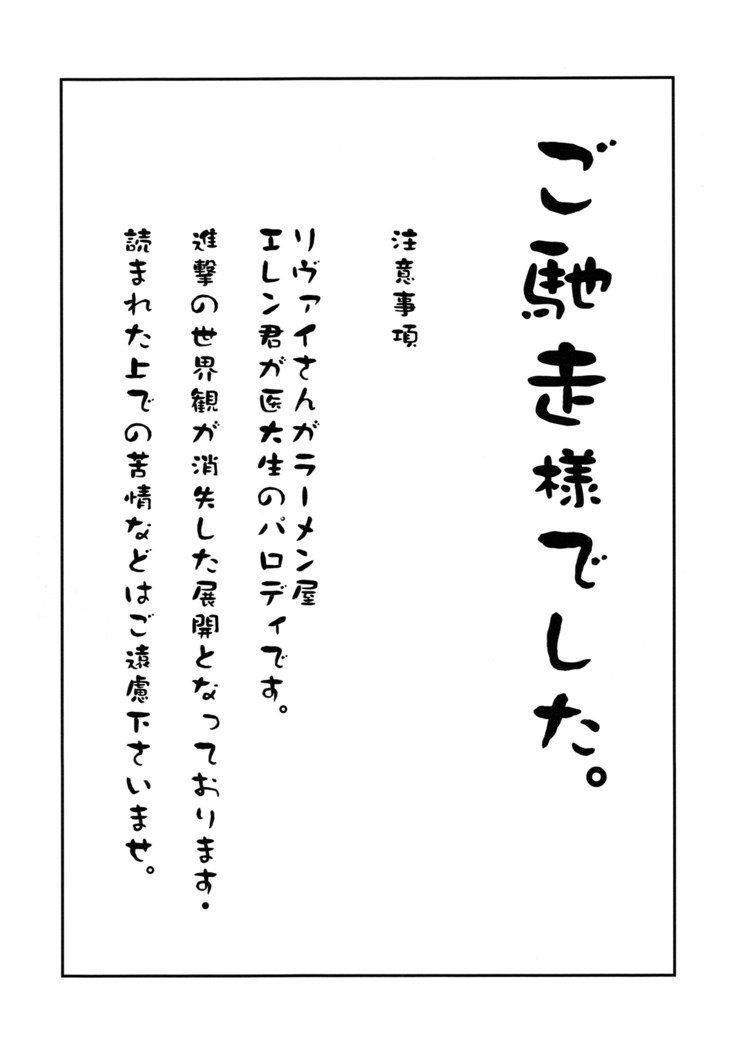 ご馳走様でした。
注意事項
リヴァイさんがラーメン屋
エレン君が医大生のパロディです。
進撃の世界観が消失した展開となっております・
読まれた上での苦情などはご遠慮下さいませ。